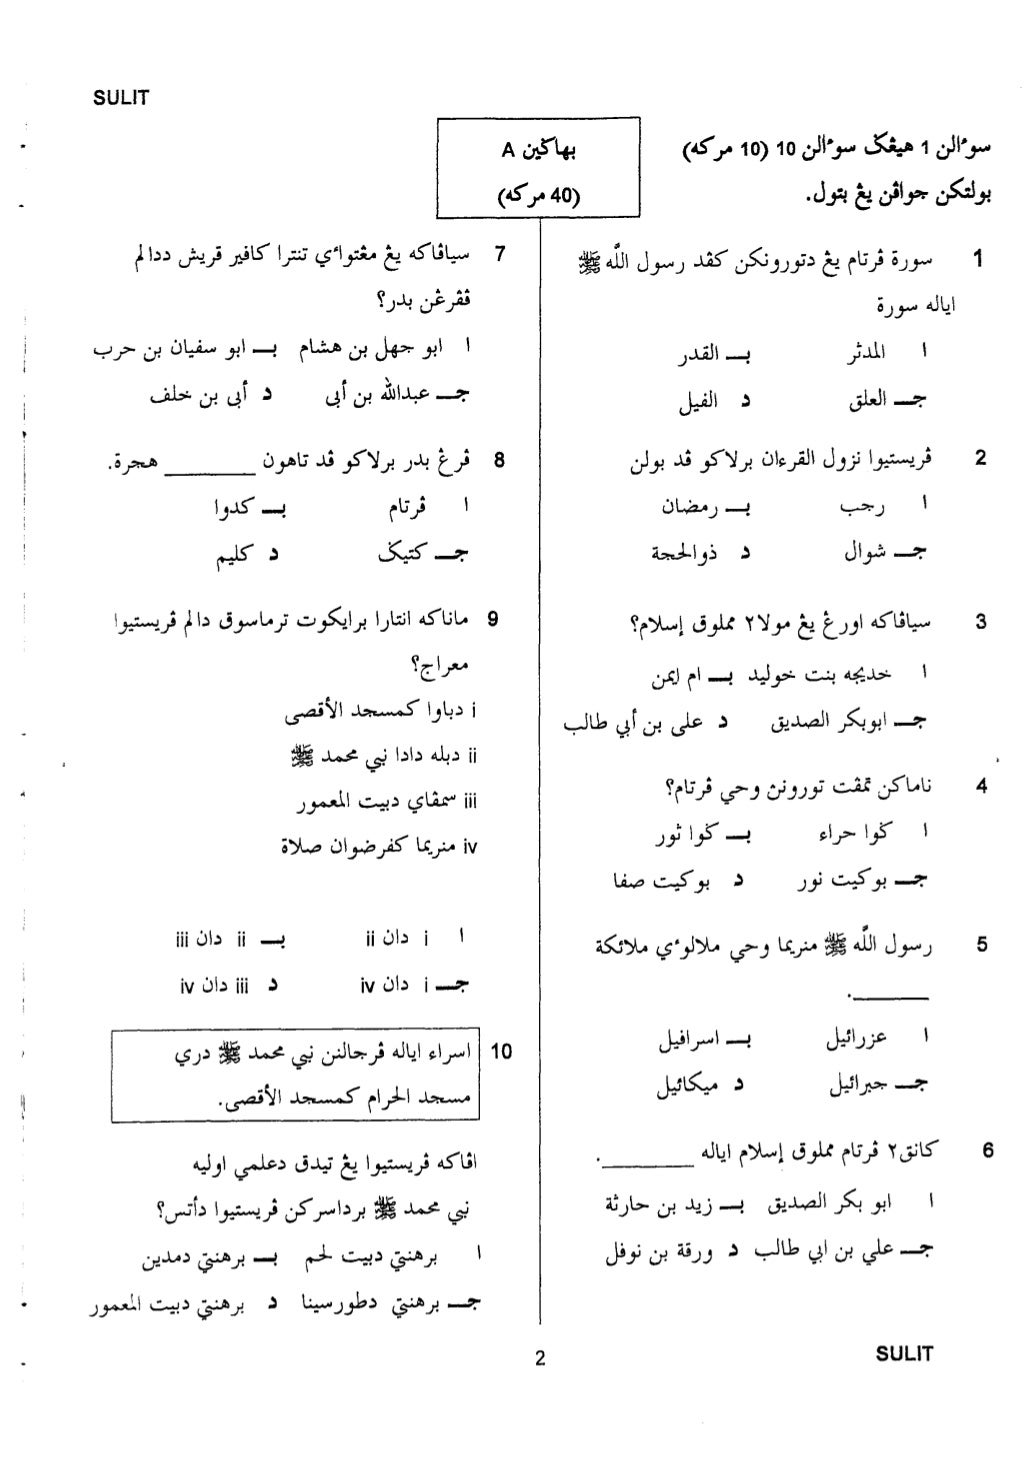 SULIT
سوءالن 1 هيڠݢ سوءالن 10 (10 مركه)
بولتكن جواڤن يڠ بتول.
بهاݢين A
(40 مركه)
1 سورة ڤرتام يڠ دتورونكن كڤد رسول اللّه ﷺ
اياله سورة
ا المدثر بـ القدر
جـ العلق د الفيل
2 ڤريستيوا نزول القرءان برلاكو ڤد بولن
ا رجب بـ رمضان
جـ شوال د ذوالحجة
3 سياڤاكه اورڠ يڠ مولا٢ مملوق إسلام؟
ا خديجه بنت خوليد بـ ام ايمن
جـ ابوبكر الصديق د على بن أبي طالب
4 ناماكن تمڤت تورونن وحي ڤرتام؟
ا ݢوا حراء بـ ݢوا ثور
جـ بوكيت نور د بوكيت صفا
5 رسول اللّه ﷺ منريما وحي ملالوءي ملائكة
________.
ا عزرائيل بـ اسرافيل
جـ جبرائيل د ميكائيل
6 كانق٢ ڤرتام مملوق إسلام اياله ________.
ا ابو بكر الصديق بـ زيد بن حارثة
جـ علي بن ابي طالب د ورقة بن نوفل
7 سياڤاكه يڠ مڠتواءي تنترا كافير قريش ددالم
ڤڤرڠن بدر؟
ا ابو جهل بن هشام بـ ابو سفيان بن حرب
جـ عبدالله بن أبى د أبى بن خلف
8 ڤرڠ بدر برلاكو ڤد تاهون ________ هجرة.
ا ڤرتام بـ كدوا
جـ كتيݢ د كليم
9 ماناكه انتارا برايكوت ترماسوق دالم ڤريستيوا
معراج؟
i دباوا كمسجد الأقصى
ii دبله دادا نبي محمد ﷺ
iii سمڤاي دبيت المعمور
iv منريما كفرضوان صلاة
ا i دان ii بـ ii دان iii
جـ i دان iv د iii دان iv
10 اسراء اياله ڤرجالنن نبي محمد ﷺ دري
مسجد الحرام كمسجد الأقصى.
اڤاكه ڤريستيوا يڠ تيدق دعلمي اوليه
نبي محمد ﷺ برداسركن ڤريستيوا دأتس؟
ا برهنتي دبيت لحم بـ برهنتي دمدين
جـ برهنتي دطورسينا د برهنتي دبيت المعمور
2
SULIT